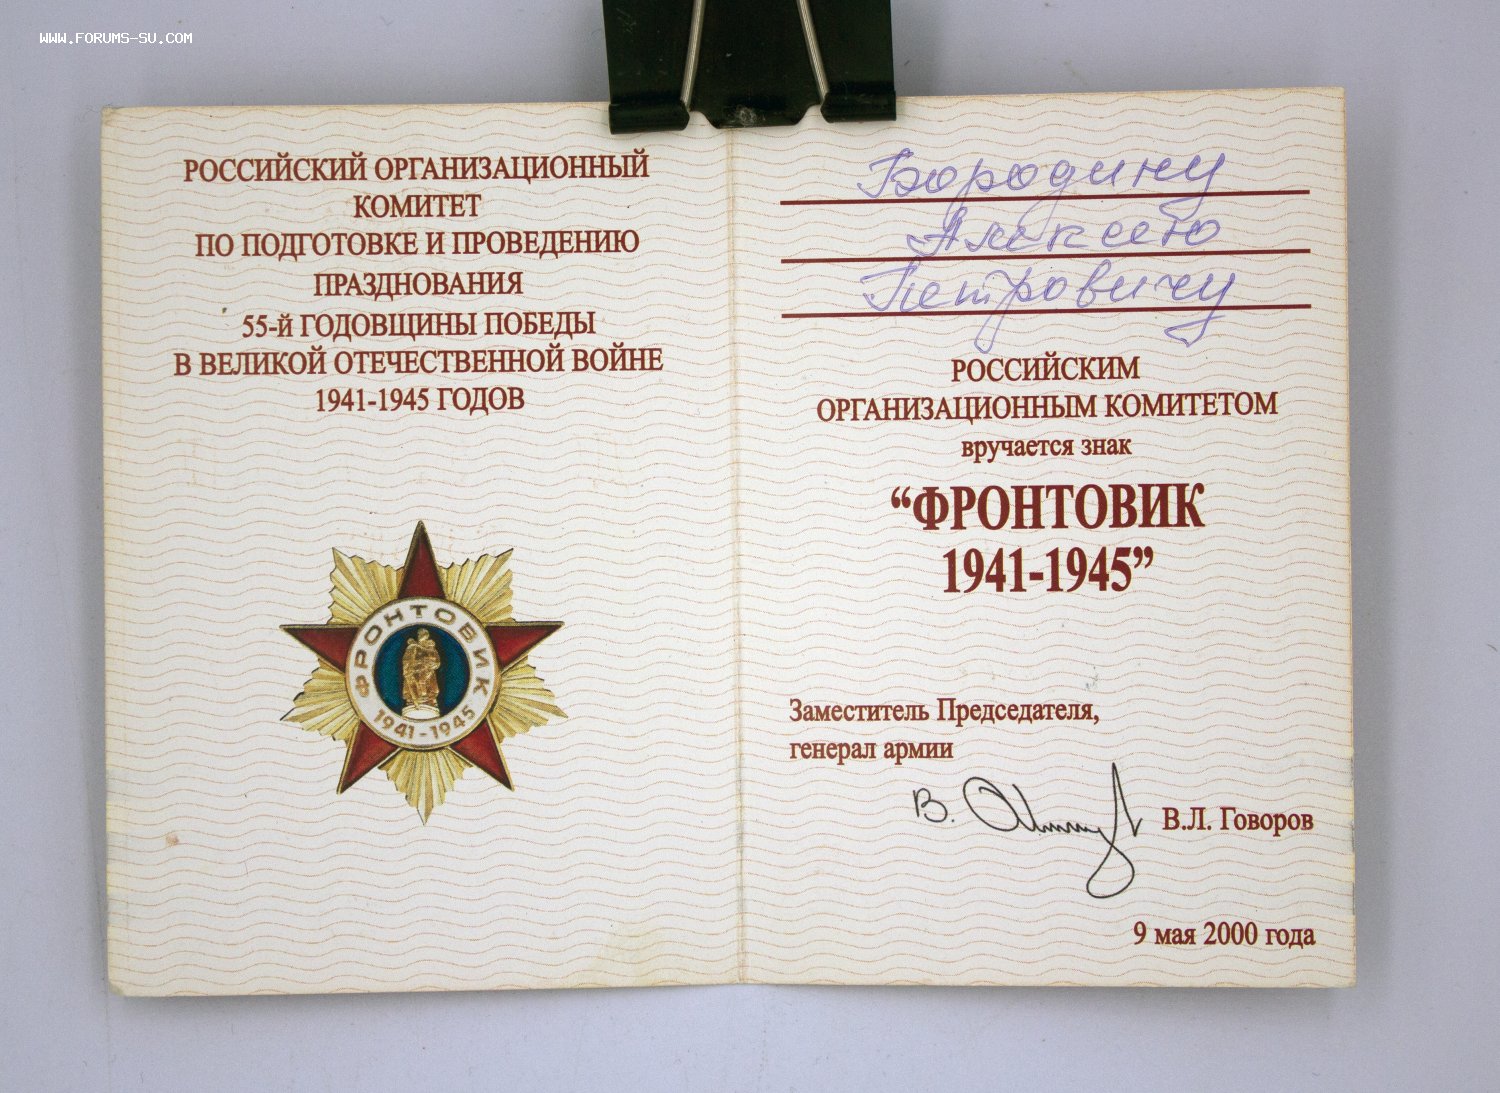 WWW.FORUMS-SU.COM
РОССИЙСКИЙ ОРГАНИЗАЦИОННЫЙ
КОМИТЕТ
ПО ПОДГОТОВКЕ И ПРОВЕДЕНИЮ
ПРАЗДНОВАНИЯ
55-й ГОДОВЩИНЫ ПОБЕДЫ
В ВЕЛИКОЙ ОТЕЧЕСТВЕННОЙ ВОЙНЕ
1941-1945 ГОДОВ
ФРОНТОВИК
1941-1945
Бородину
Алексею
Петровичу
РОССИЙСКИМ
ОРГАНИЗАЦИОННЫМ КОМИТЕТОМ
вручается знак
“ФРОНТОВИК
1941-1945”
Заместитель Председателя,
генерал армии
В.Л. Говоров
9 мая 2000 года